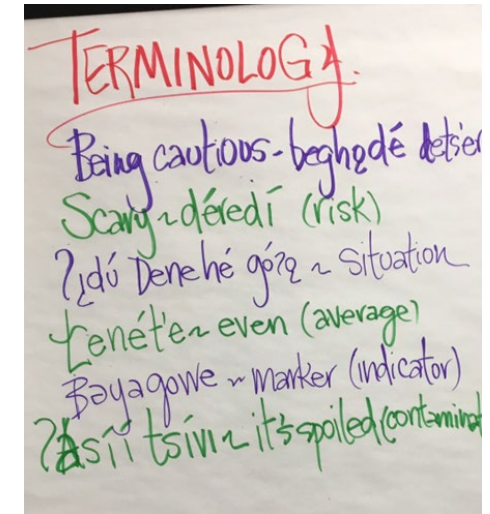 TERMINOLOGY.
Being cautious - beghǫdé
Scary ~ déredí (risk)
Ɂıdú Denehé góɂą ~ situation
Łenét'e ~ even (average)
Bəyagowe ~ marker (indicator)
Ɂasíí tsíwı ~ it's spoiled (contaminat